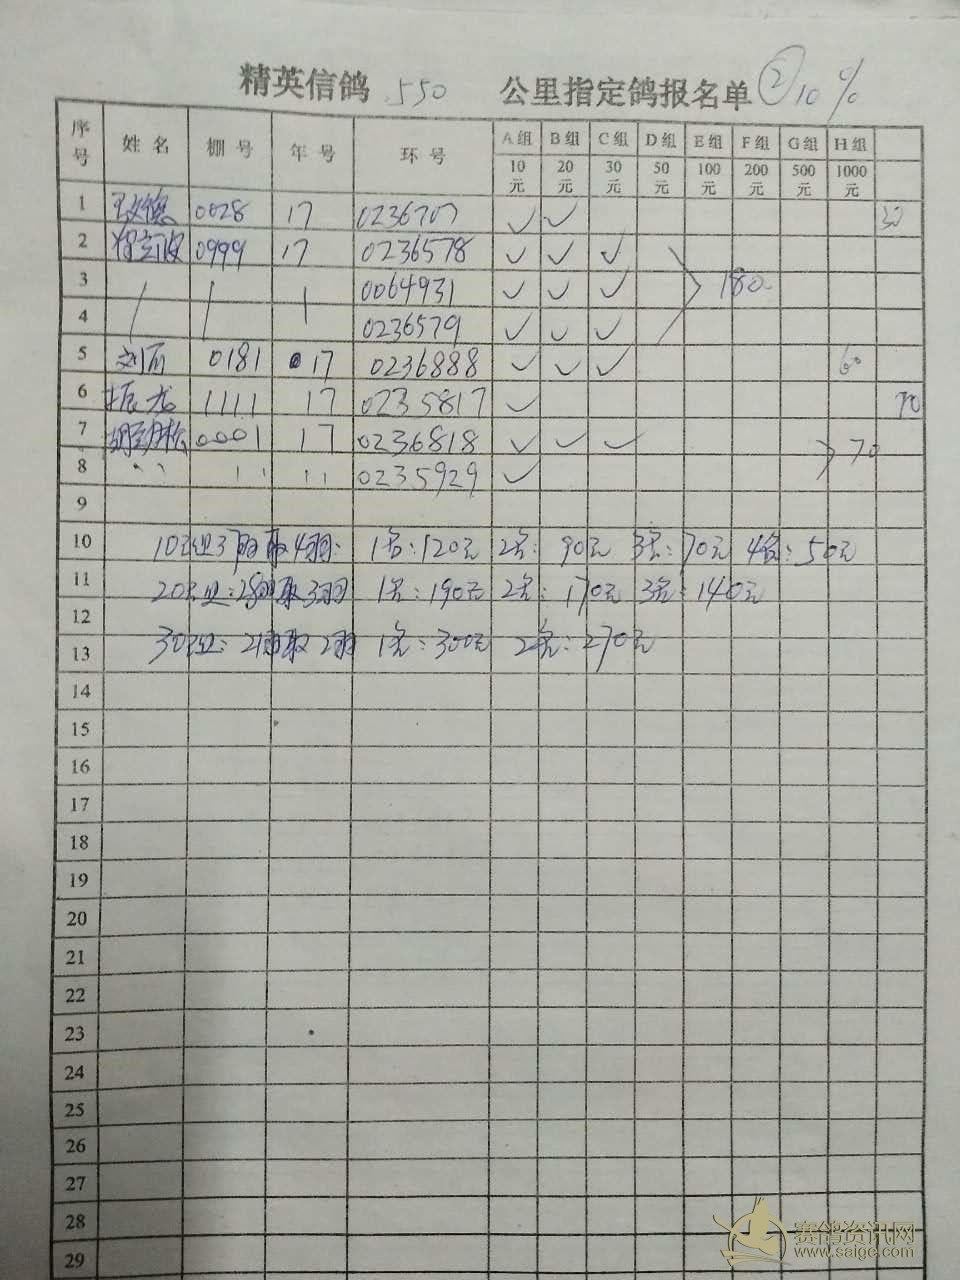 精英信鸽 550 公里指定鸽报名单 ② 10%
序号 姓名 棚号 年号 环号 A组 B组 C组 D组 E组 F组 G组 H组
10元 20元 30元 50元 100元 200元 500元 1000元
1 0028 17 0236707 ✓ ✓ 30
2 0999 17 0236578 ✓ ✓ ✓
3 / / 1 0064931 ✓ ✓ ✓ 180
4 0236579 ✓ ✓ ✓
5 刘 0181 17 0236888 ✓ ✓ ✓ 60
6 振龙 1111 17 0235817 ✓
7 0001 17 0236818 ✓ ✓ ✓ 70
8 〃 〃 〃 0235929 ✓
9
10 10元组37羽取4羽: 1名:120元 2名:90元 3名:70元 4名:50元
11 20元组:28羽取3羽 1名:190元 2名:170元 3名:140元
12
13 30元组:21羽取2羽 1名:300元 2名:270元
14
15
16
17
18
19
20
21
22
23
24
25
26
27
28
29
赛鸽资讯网
www.saige.com